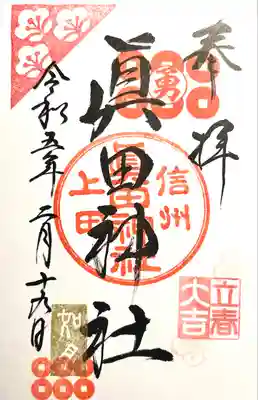 奉拝
勇
眞田神社
信州
上田
眞田神社
立春
大吉
令和五年二月十九日
如月